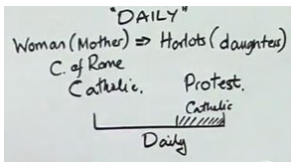 "DAILY"
Woman (Mother) ⇒ Harlots (daughters)
C. of Rome
Catholic. Protest.
Catholic
Daily